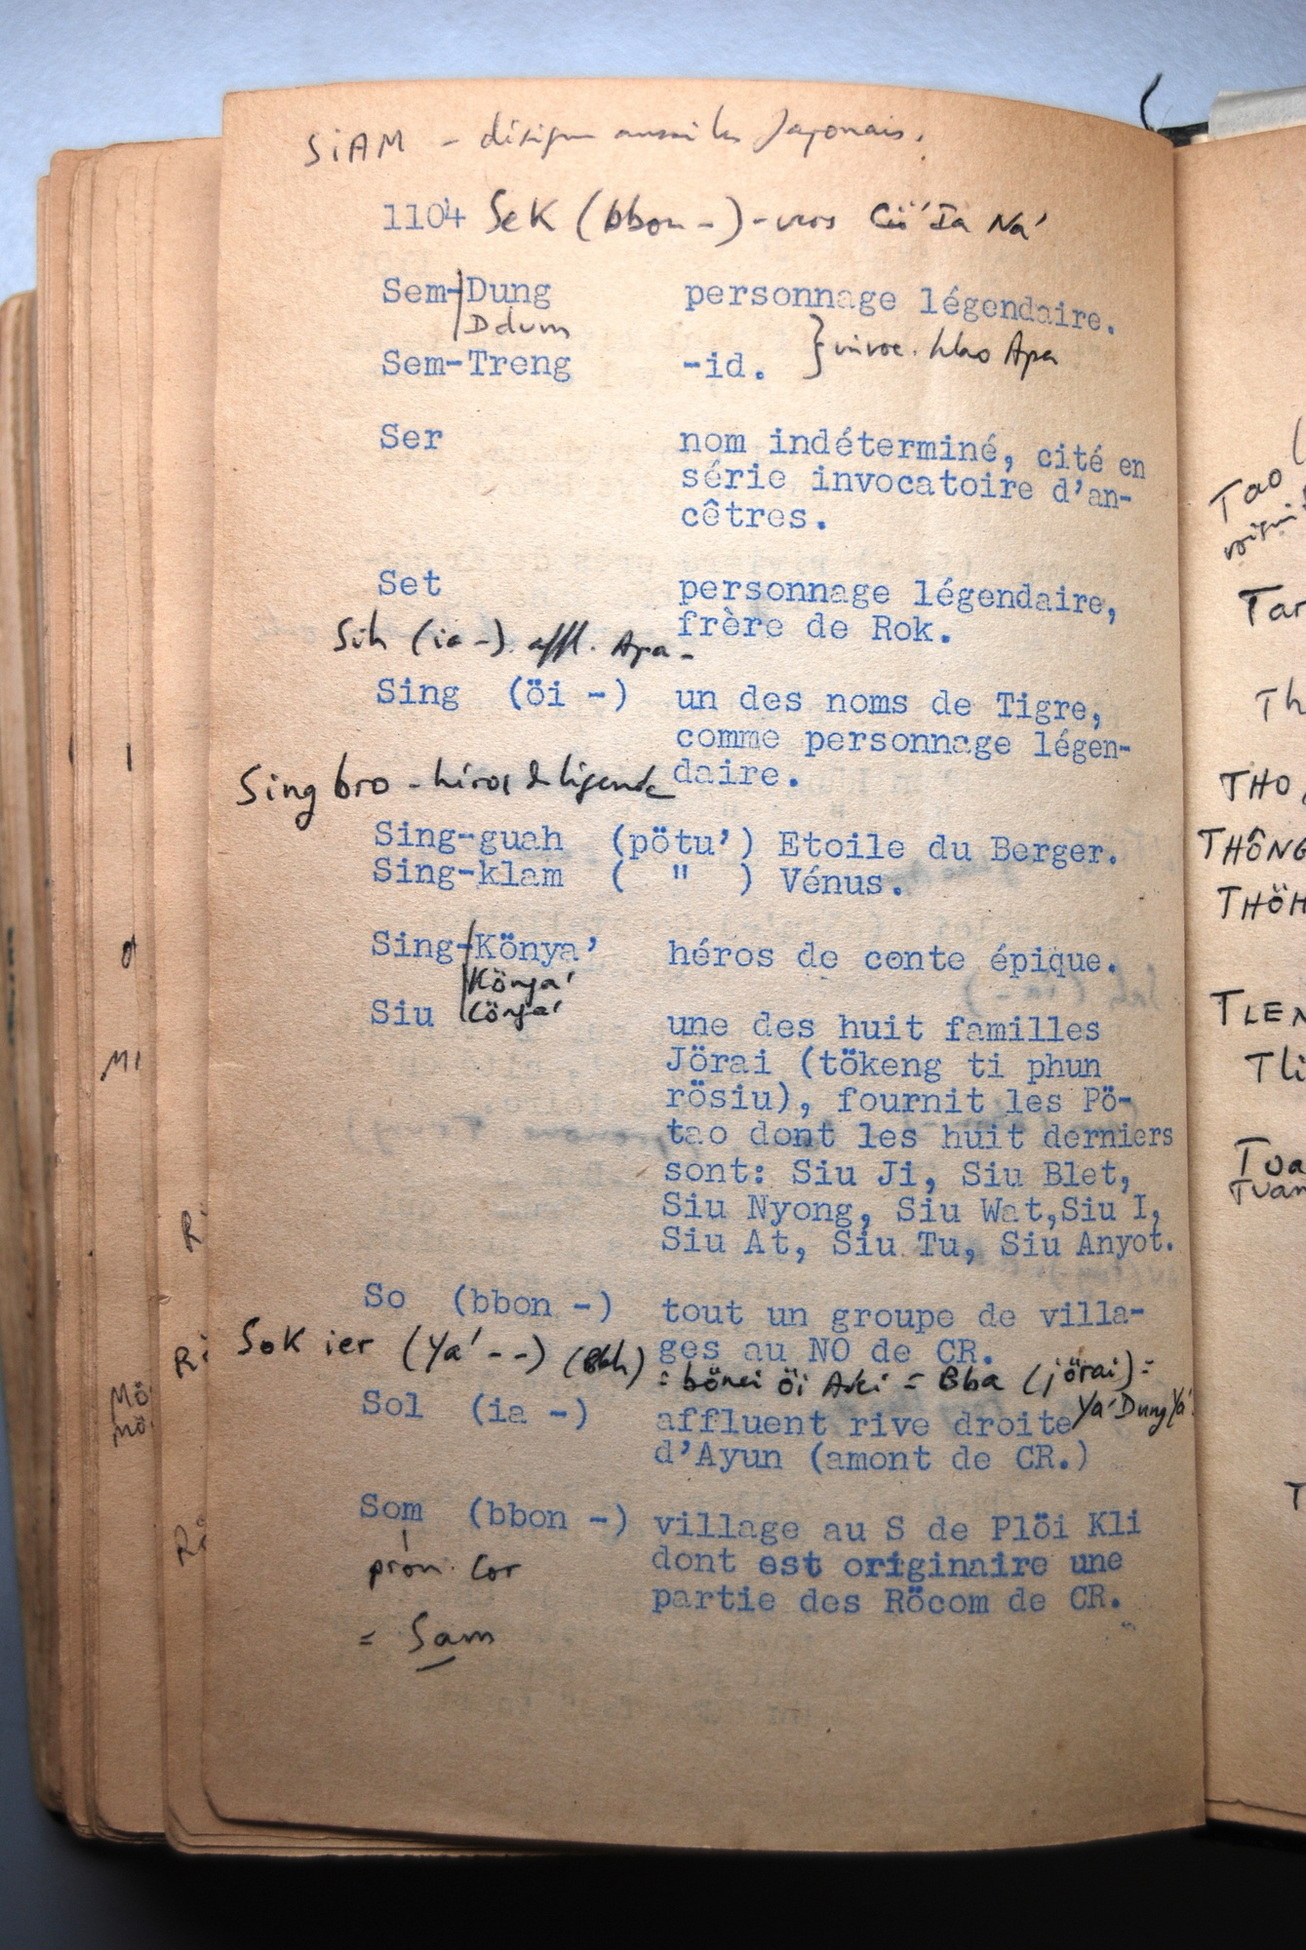 SiAM - désigne aussi les Japonais.
1104 SeK (bbon -) - vers Cö' Ia Na'
Sem-Dung personnage légendaire.
Ddum
Sem-Treng -id. } invoc. Apa
Ser nom indéterminé, cité en
série invocatoire d'an-
cêtres.
Set personnage légendaire,
frère de Rok.
Sih (ia -) affl. Apa -
Sing (öi -) un des noms de Tigre,
comme personnage légen-
daire.
Sing bro - héros de légende
Sing-guah (pötu') Etoile du Berger.
Sing-klam ( " ) Vénus.
Sing-Könya' héros de conte épique.
Könga'
Cönga'
Siu une des huit familles
Jörai (tökeng ti phun
rösiu), fournit les Pö-
tao dont les huit derniers
sont: Siu Ji, Siu Blet,
Siu Nyong, Siu Wat,Siu I,
Siu At, Siu Tu, Siu Anyot.
So (bbon -) tout un groupe de villa-
ges au NO de CR.
SoK ier (Ya' - -) = bönei öi = Bba (jörai) =
Ya' Dung Ya'
Sol (ia -) affluent rive droite
d'Ayun (amont de CR.)
Som (bbon -) village au S de Plöi Kli
dont est originaire une
partie des Röcom de CR.
pron. Cor
= Sam
Tao
Tar
Th
THO
THÔNG
THÖH
TLEN
Tli
Tua
Tuan
T
MI
R
Rö
Mö
mö
Rö